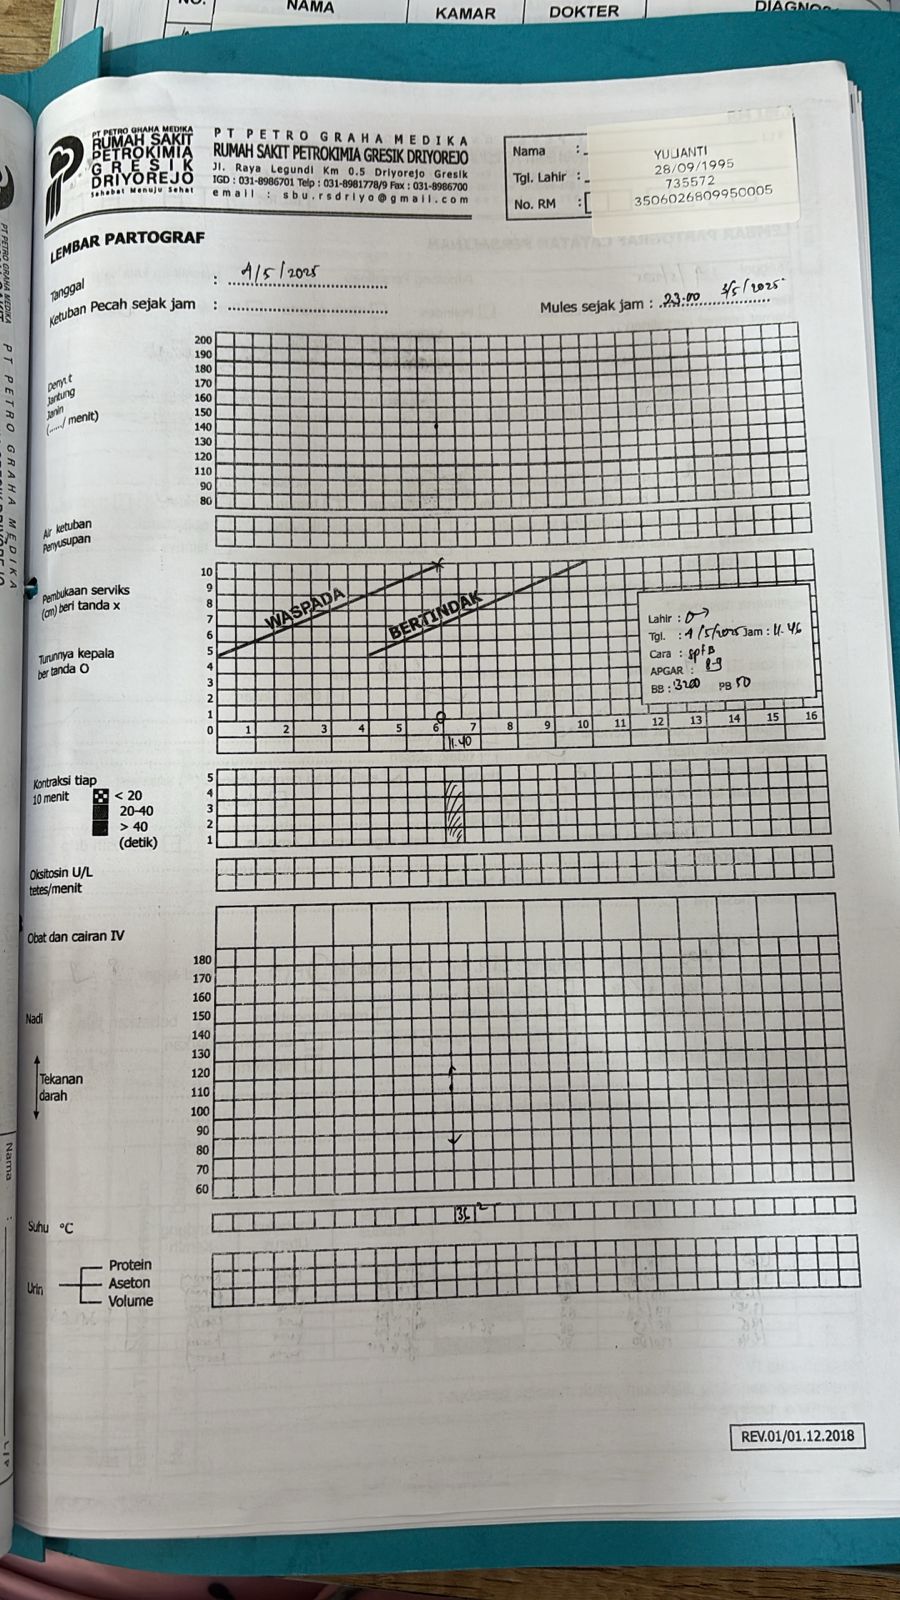 NO.
NAMA
KAMAR
DOKTER
PT PETRO GRAHA MEDIKA
RUMAH SAKIT
PETROKIMIA
GRESIK
DRIYOREJO
Sahabat Menuju Sehat
PT PETRO GRAHA MEDIKA
RUMAH SAKIT PETROKIMIA GRESIK DRIYOREJO
Jl. Raya Legundi Km 0.5 Driyorejo Gresik
IGD : 031-8986701 Telp : 031-8981778/9 Fax : 031-8986700
email : sbu.rsdriyo@gmail.com
Nama :
Tgl. Lahir :
No. RM :
YULIANTI
28/09/1995
735572
3506026809950005
LEMBAR PARTOGRAF
Tanggal : 4/5/2025
Ketuban Pecah sejak jam :
Mules sejak jam : 23.00 3/5/2025
Denyut
Jantung
Janin
(....../ menit)
200
190
180
170
160
150
140
130
120
110
90
80
Air ketuban
Penyusupan
Pembukaan serviks
(cm) beri tanda x
Turunnya kepala
ber tanda O
10
9
8
7
6
5
4
3
2
1
0
WASPADA
BERTINDAK
Lahir :
Tgl. : 4/5/2025 Jam : 11.46
Cara : sptB
APGAR : 8-9
BB : 3200 PB 50
1 2 3 4 5 6 7 8 9 10 11 12 13 14 15 16
11.40
Kontraksi tiap
10 menit
< 20
20-40
> 40
(detik)
5
4
3
2
1
Oksitosin U/L
tetes/menit
Obat dan cairan IV
Nadi
Tekanan
darah
180
170
160
150
140
130
120
110
100
90
80
70
60
Suhu °C
36²
Urin
Protein
Aseton
Volume
REV.01/01.12.2018
PT PETRO GRAHA MEDIKA
Nama :